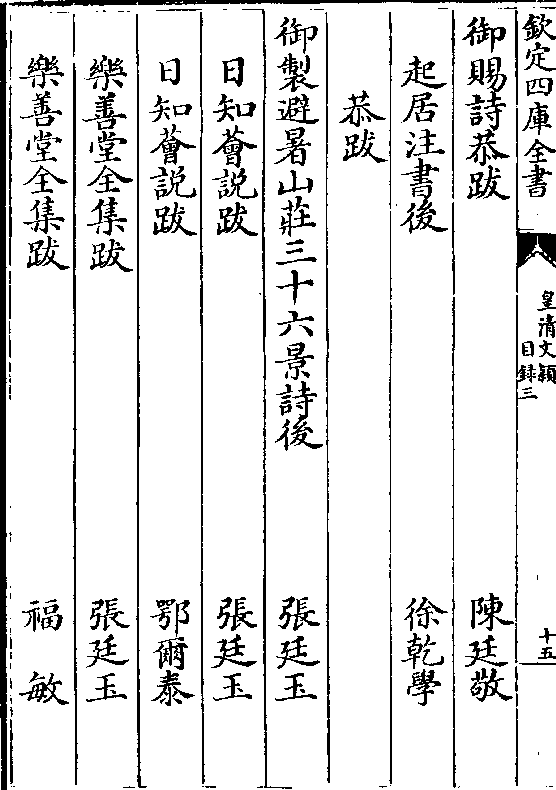 欽定四庫全書
皇清文穎
目録三
十五
御賜詩恭跋 陳廷敬
起居注書後 徐乾學
恭跋
御製避暑山莊三十六景詩後 張廷玉
日知薈説跋 張廷玉
日知薈説跋 鄂爾泰
樂善堂全集跋 張廷玉
樂善堂全集跋 福敏